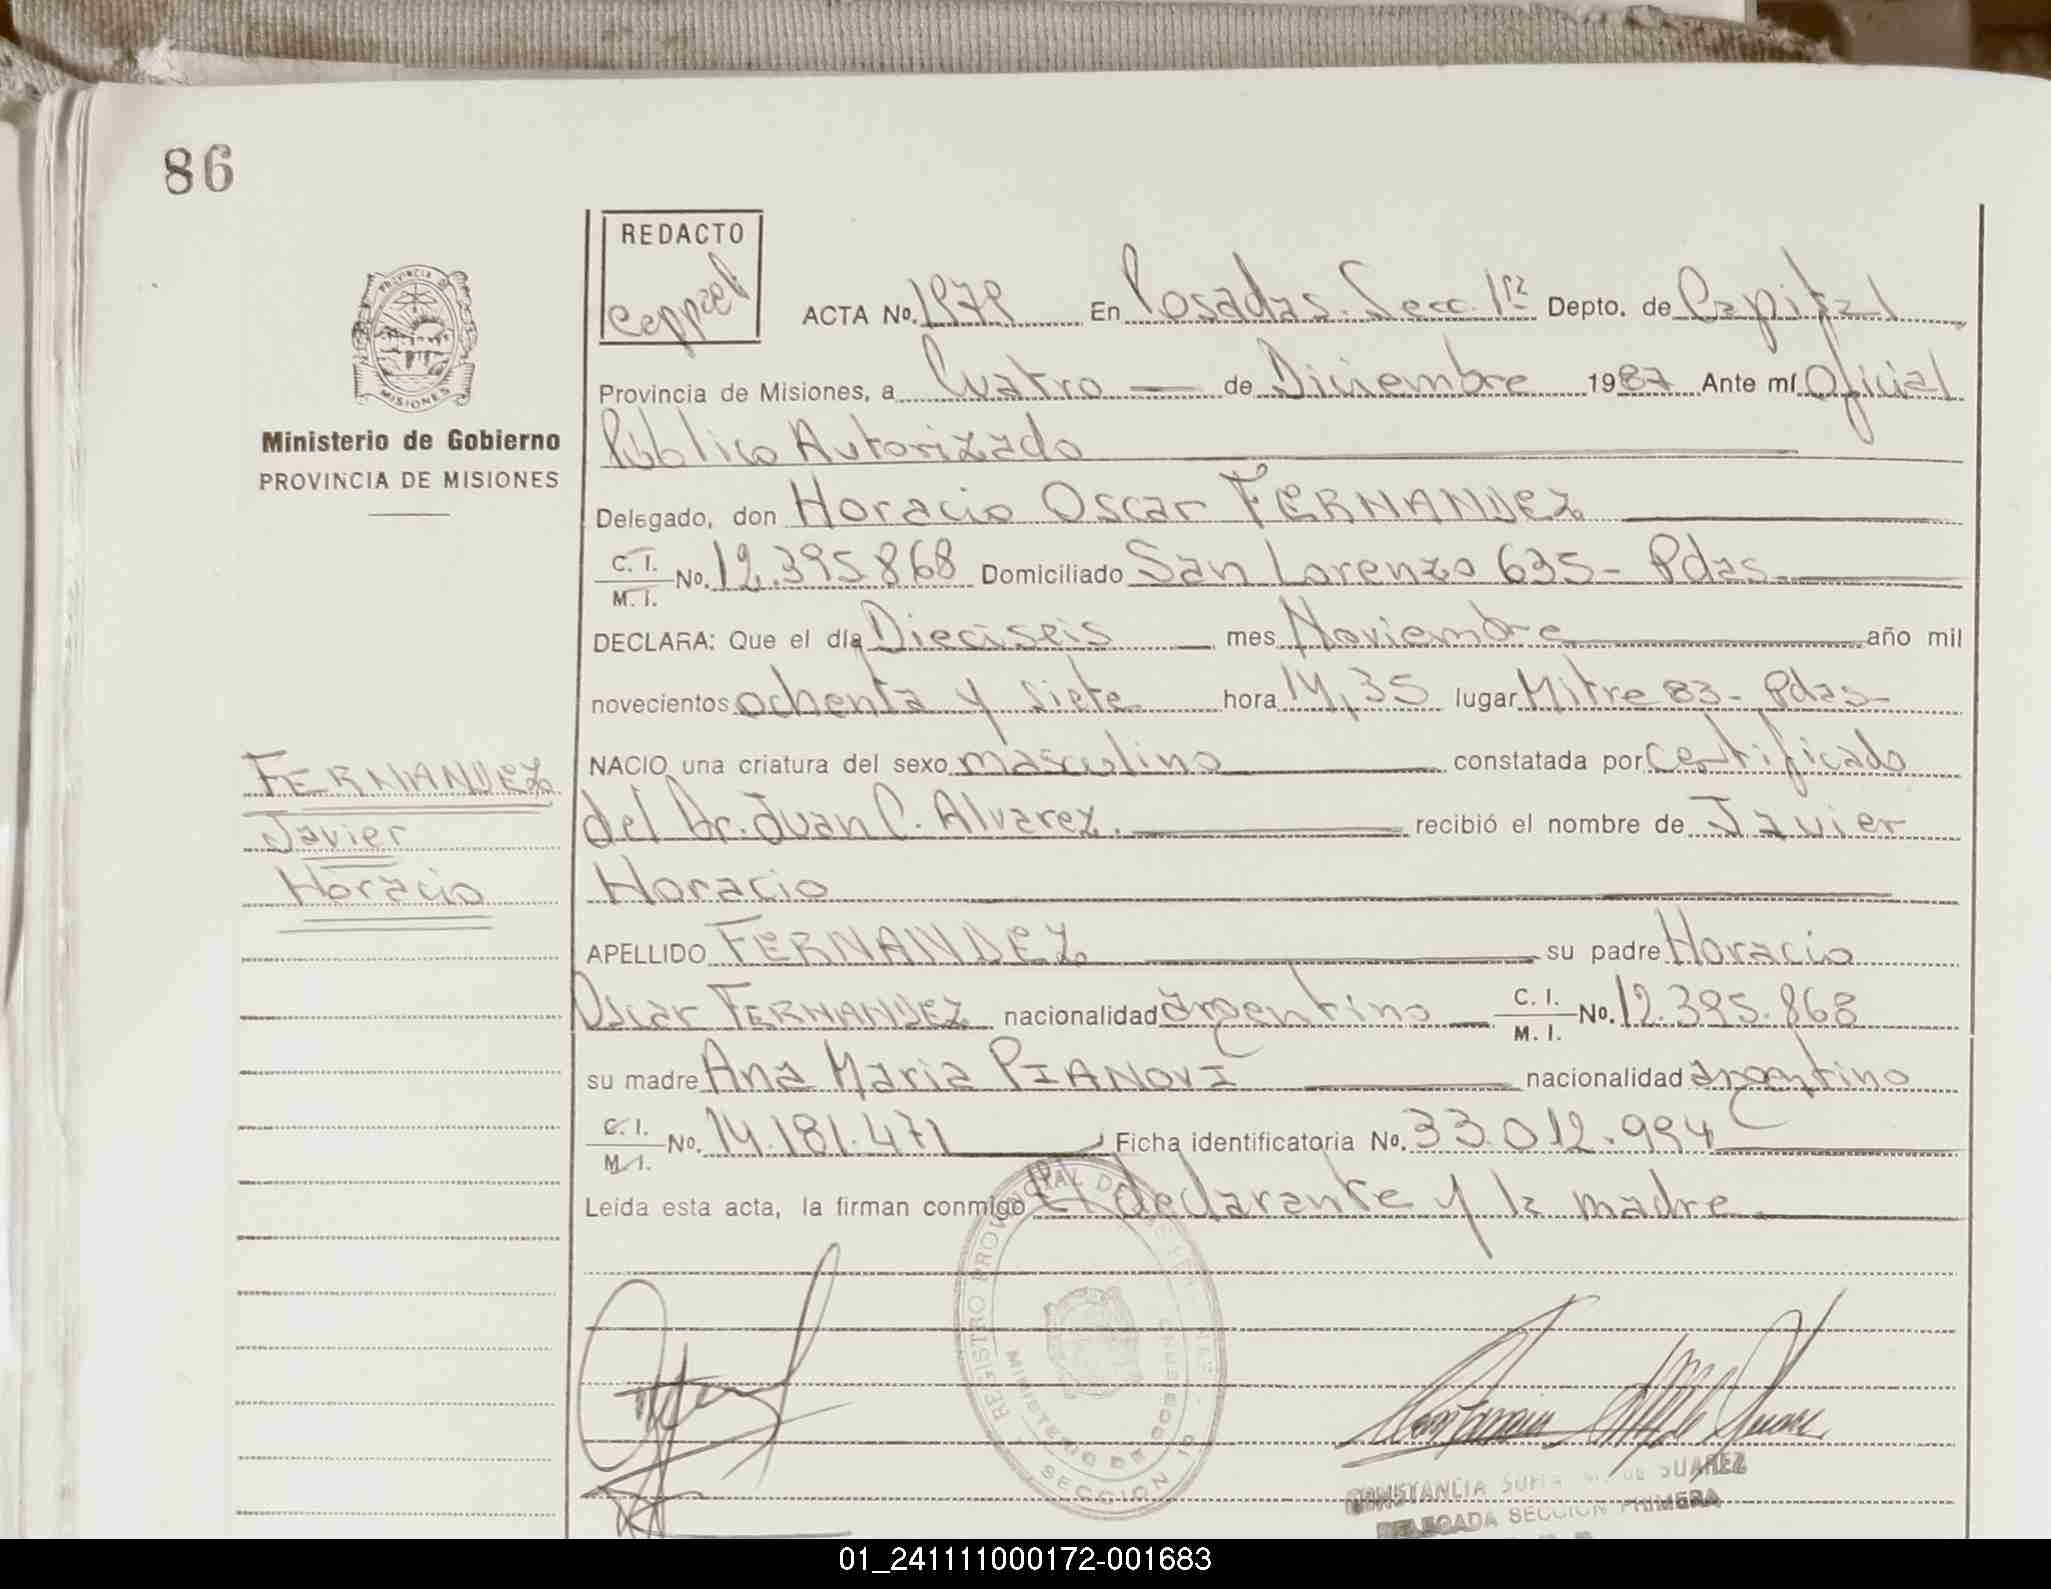 86
REDACTO
Ceppael
ACTA No. 1979 En Posadas. Secc. 1ra Depto. de Capital
Provincia de Misiones, a Cuatro de Diciembre 1987 Ante mí Oficial
Público Autorizado
Delegado, don Horacio Oscar FERNANDEZ
C. I.
M. I. No. 12.395.868 Domiciliado San Lorenzo 635- Pdas.
DECLARA: Que el día Dieciseis mes Noviembre año mil
novecientos ochenta y siete hora 14,35 lugar Mitre 83- Pdas-
NACIO una criatura del sexo masculino constatada por certificado
del Dr. Juan C. Alvarez. recibió el nombre de Javier
Horacio
APELLIDO FERNANDEZ su padre Horacio
Oscar FERNANDEZ nacionalidad argentino C. I.
M. I. No. 12.395.868
su madre Ana Maria PIANOVI nacionalidad argentino
C. I.
M. I. No. 14.181.471 Ficha identificatoria No. 33.012.994
Leída esta acta, la firman conmigo El declarante y la madre.
PROVINCIA DE
MISIONES
Ministerio de Gobierno
PROVINCIA DE MISIONES
FERNANDEZ
Javier
Horacio
REGISTRO PROVINCIAL DE LAS
MINISTERIO DE GOBIERNO
SECCION 1a
CONSTANCIA DE SUAREZ
DELEGADA SECCION PRIMERA
01_241111000172-001683